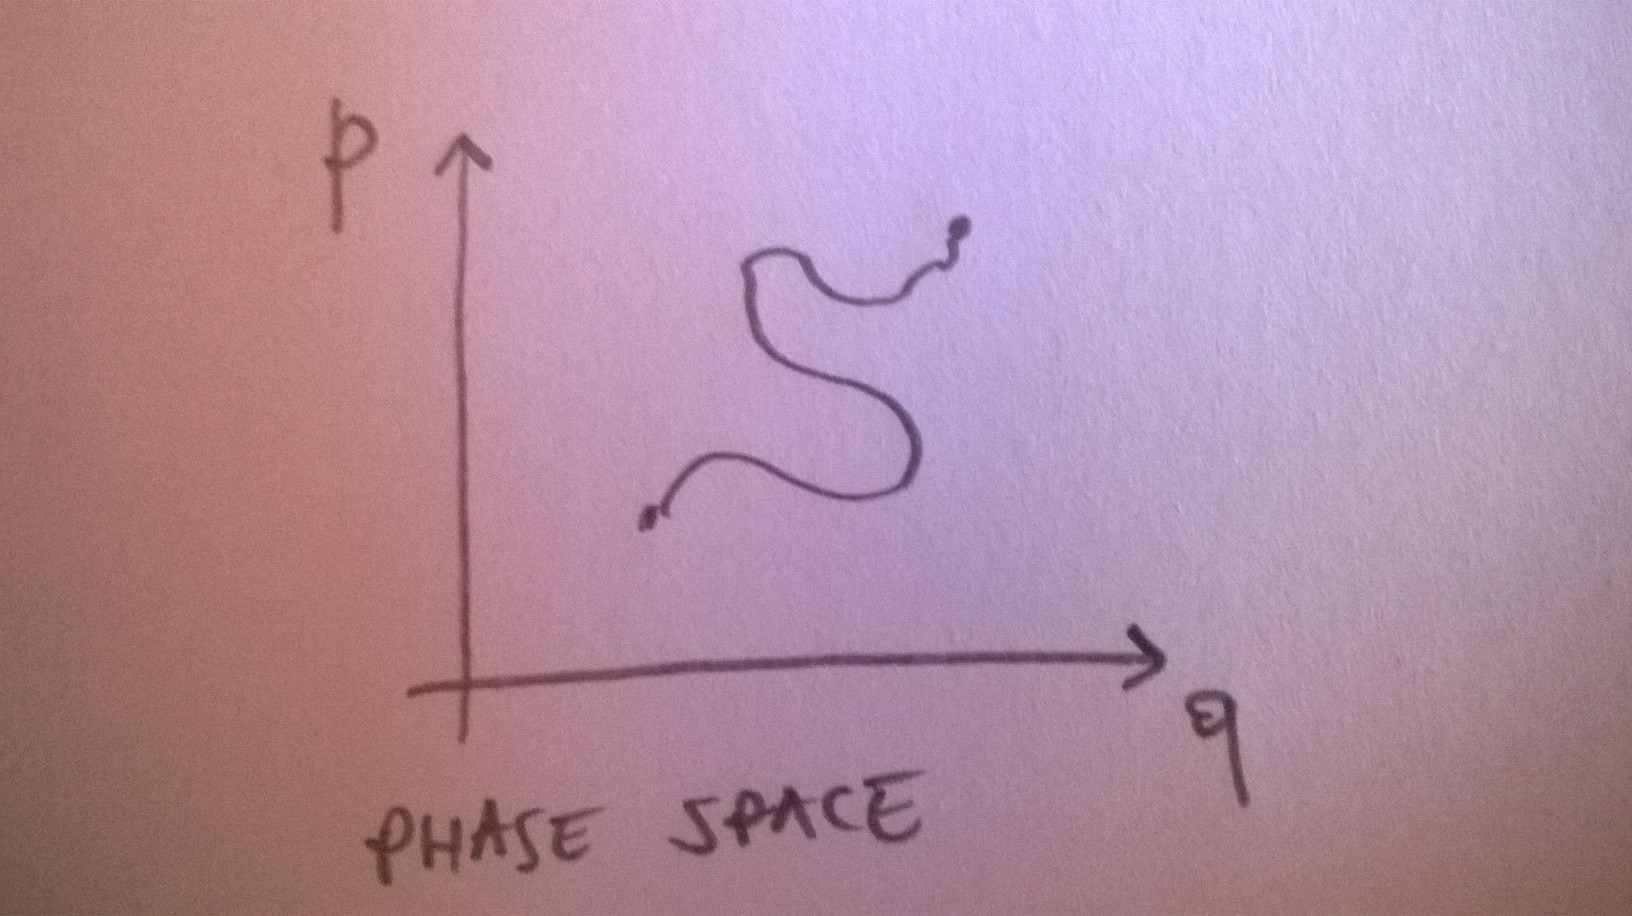 p
q
PHASE SPACE